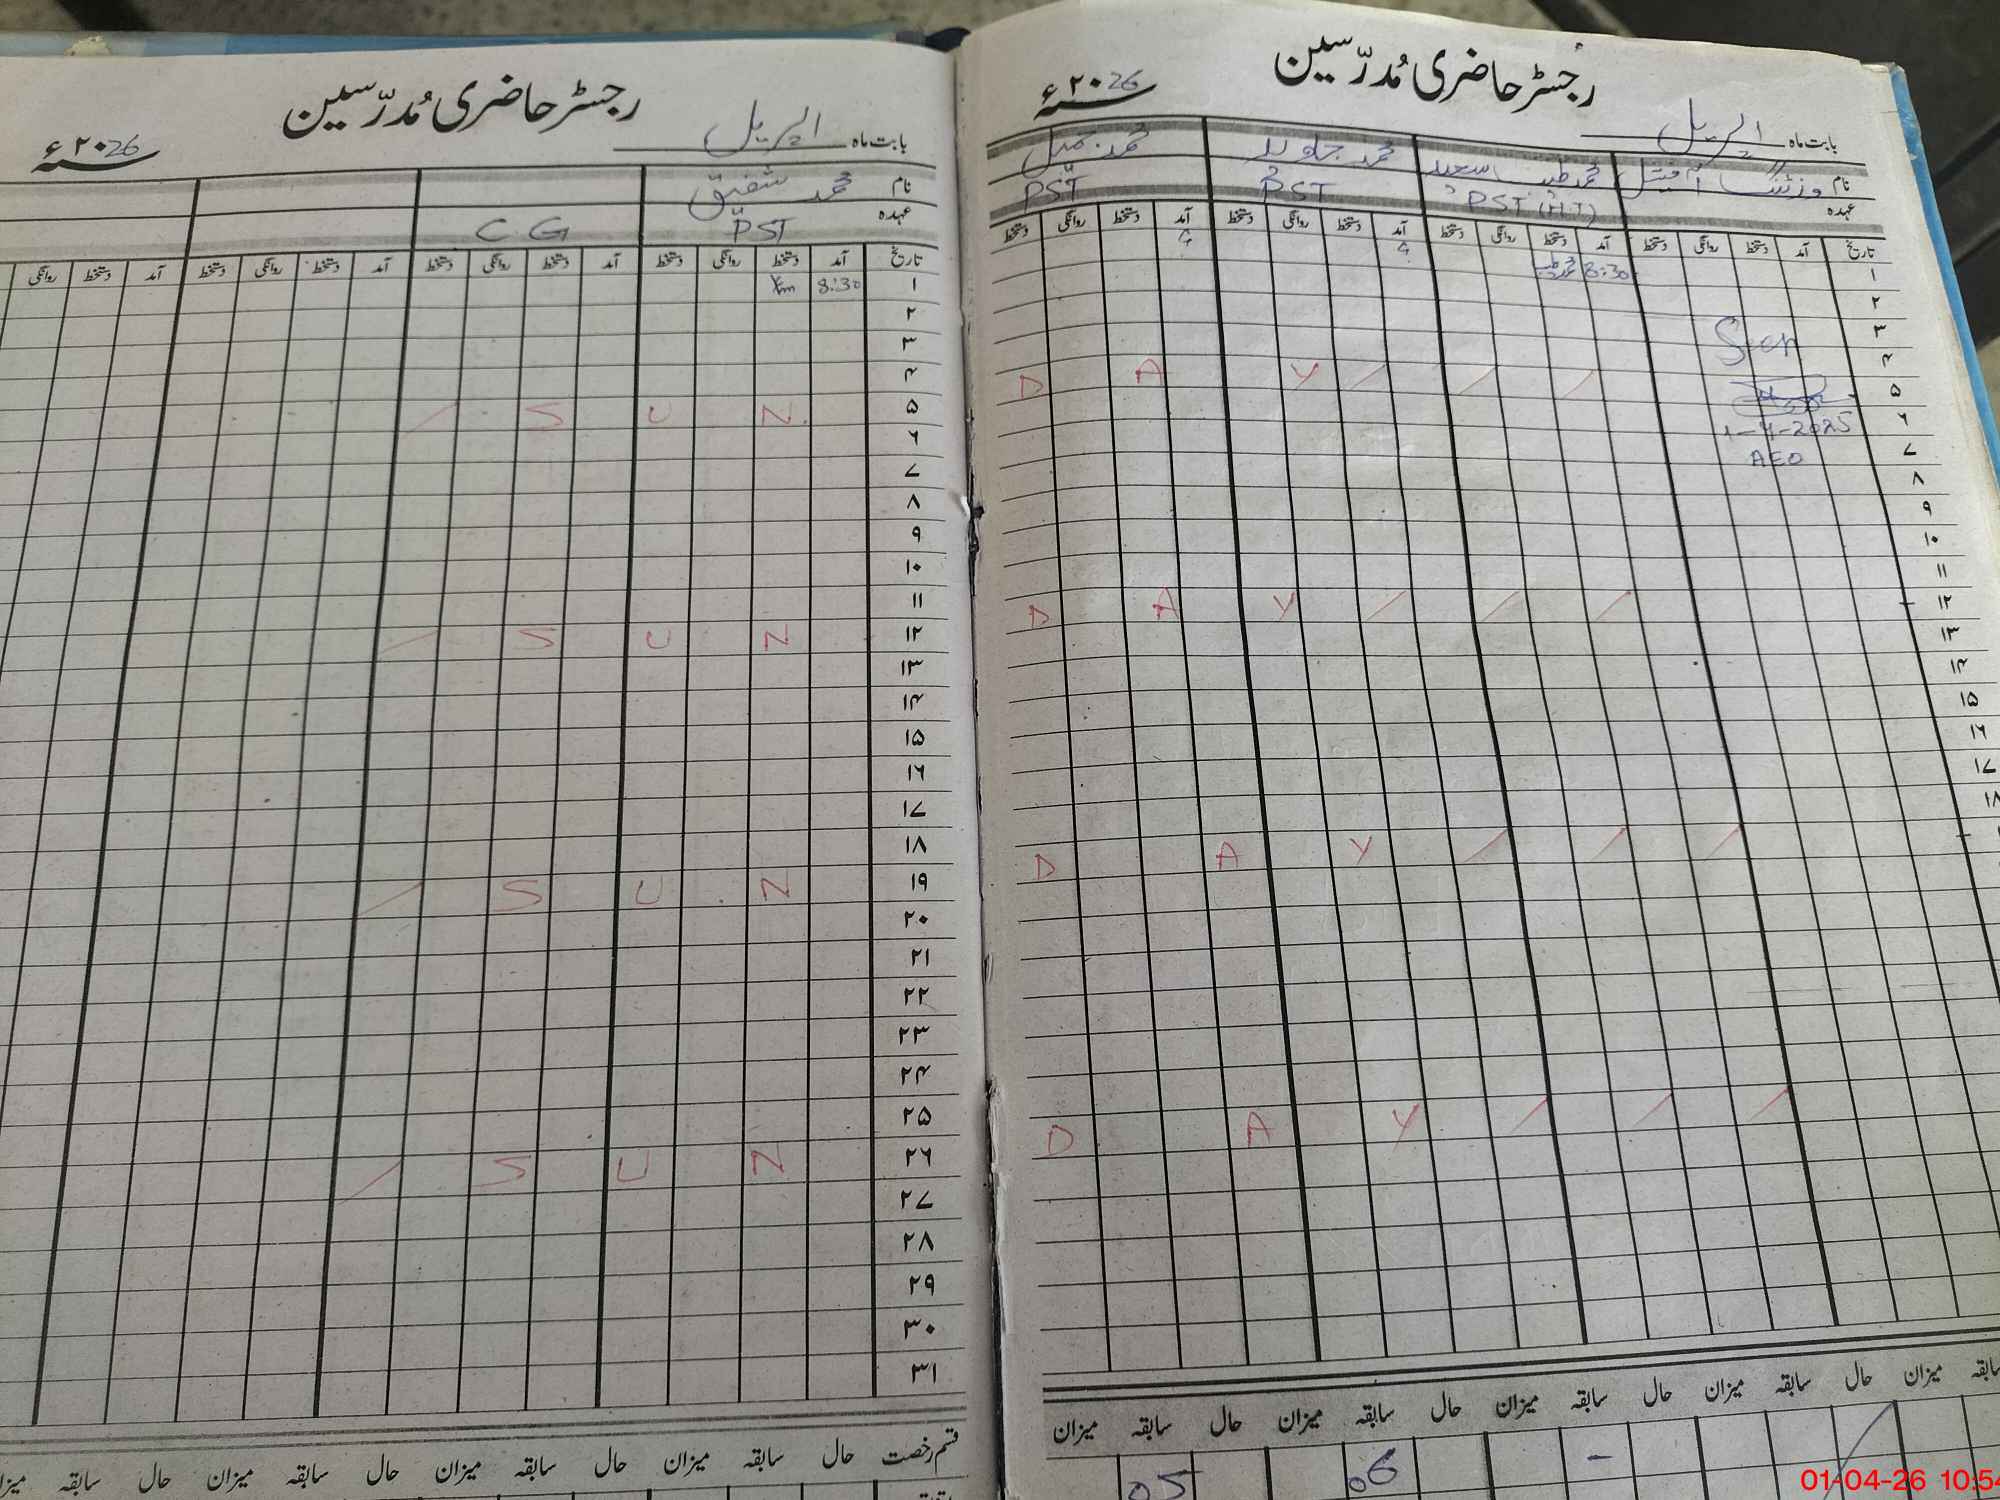 رجسٹر حاضری مُدرّسین
بابت ماہ اپریل ۲۰26ء
نام محمد شفیق
عہدہ PST CG
تاریخ آمد دستخط روانگی دستخط آمد دستخط روانگی دستخط آمد دستخط روانگی دستخط آمد دستخط روانگی
۱ 8:30
۲
۳
۴
۵ N U S
۶
۷
۸
۹
۱۰
۱۱
۱۲ N U S
۱۳
۱۴
۱۵
۱۶
۱۷
۱۸
۱۹ N U S
۲۰
۲۱
۲۲
۲۳
۲۴
۲۵
۲۶ N U S
۲۷
۲۸
۲۹
۳۰
۳۱
قسم رخصت حال سابقہ میزان حال سابقہ میزان حال سابقہ میزان حال سابقہ میزان
رجسٹر حاضری مُدرّسین
بابت ماہ اپریل ۲۰26ء
نام وزٹنگ آفیشل محمد طیب سعید محمد جاوید محمد جمیل
عہدہ PST (H.T) PST PST
تاریخ آمد دستخط روانگی دستخط آمد دستخط روانگی دستخط آمد دستخط روانگی دستخط آمد دستخط روانگی دستخط
۱ 8:30 محمد طیب
۲
۳ Seen
۴
۵ Y A D
۶ 1-4-2025
۷ AEO
۸
۹
۱۰
۱۱
۱۲ Y A D
۱۳
۱۴
۱۵
۱۶
۱۷
۱۸
Y A D
Y A D
سابقہ میزان حال سابقہ میزان حال سابقہ میزان حال سابقہ میزان حال سابقہ میزان
- 06 05
01-04-26 10:54